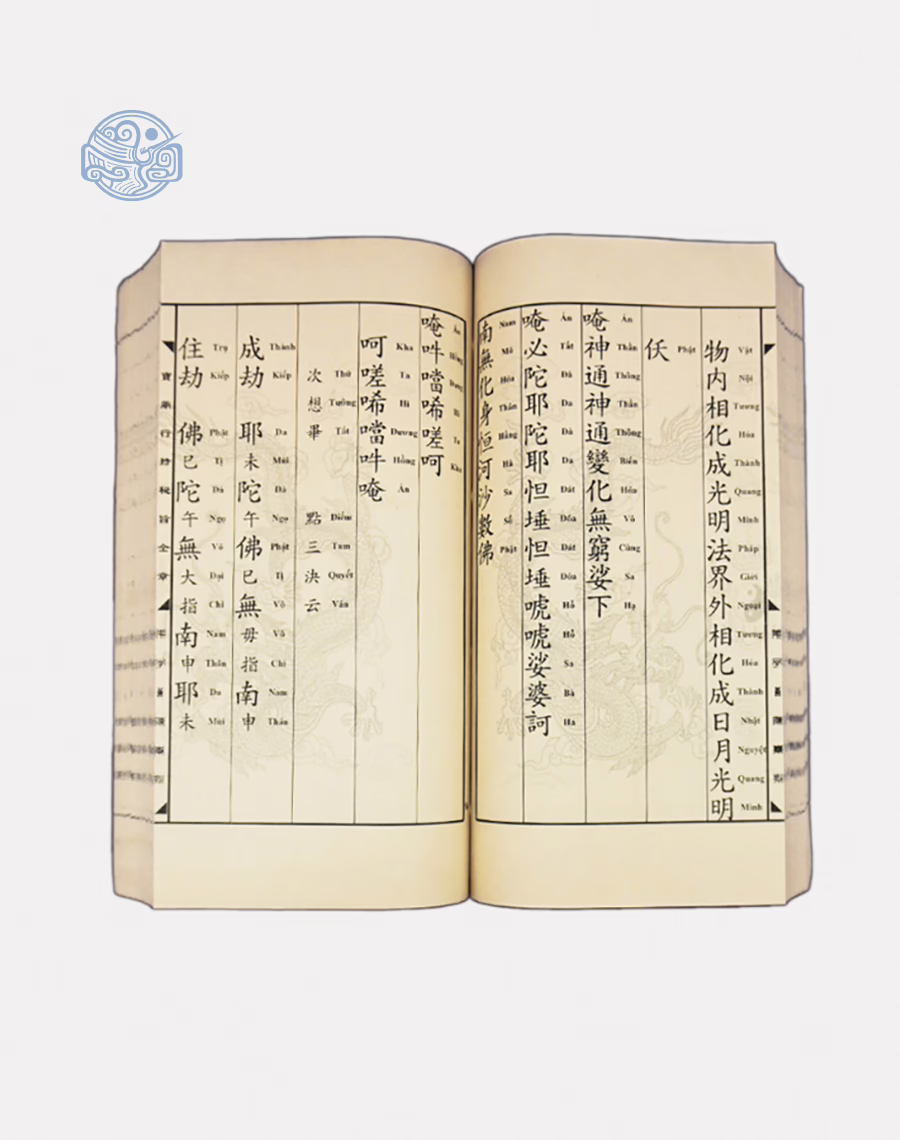 物内相化成光明法界外相化成日月光明
Vật Nội Tương Hóa Thành Quang Minh Pháp Giới Ngoại Tương Hóa Thành Nhật Nguyệt Quang Minh
仸
Phật
唵神通神通變化無窮娑下
Án Thần Thông Thần Thông Biến Hóa Vô Cùng Sa Hạ
唵必陀耶陀耶怛埵怛埵唬唬娑婆訶
Án Tất Đà Da Đà Da Đát Đóa Đát Đóa Hổ Hổ Sa Bà Ha
南無化身恒河沙數佛
Nam Mô Hóa Thân Hằng Hà Sa Số Phật
唵吽噹唏嗟呵
Án Hồng Đương Hi Ta Kha
呵嗟唏噹吽唵
Kha Ta Hi Dương Hồng Án
次想畢 點三決云
Thứ Tưởng Tất Điểm Tam Quyết Vân
成劫 耶未陀午佛巳無毋指南申
Thành Kiếp Da Mùi Đà Ngọ Phật Tị Vô Vô Chỉ Nam Thân
住劫 佛巳陀午無大指南申耶未
Trụ Kiếp Phật Tị Đà Ngọ Vô Đại Chỉ Nam Thân Da Mùi